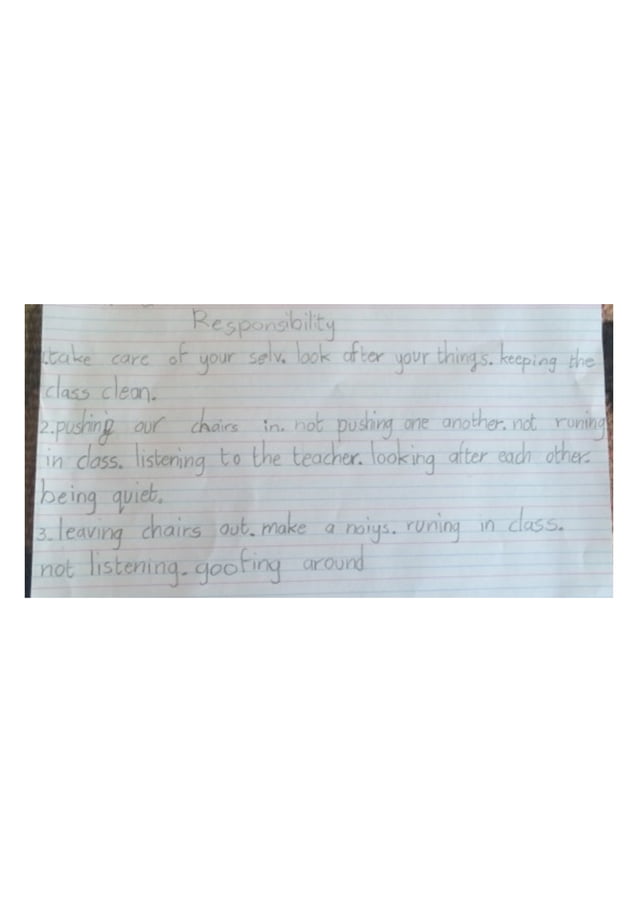 Responsibility
1.take care of your selv. look after your things. keeping the
class clean.
2.pushing our chairs in. not pushing one another. not runing
in class. listening to the teacher. looking after each other.
being quiet.
3.leaving chairs out. make a noiys. runing in class.
not listening. goofing around